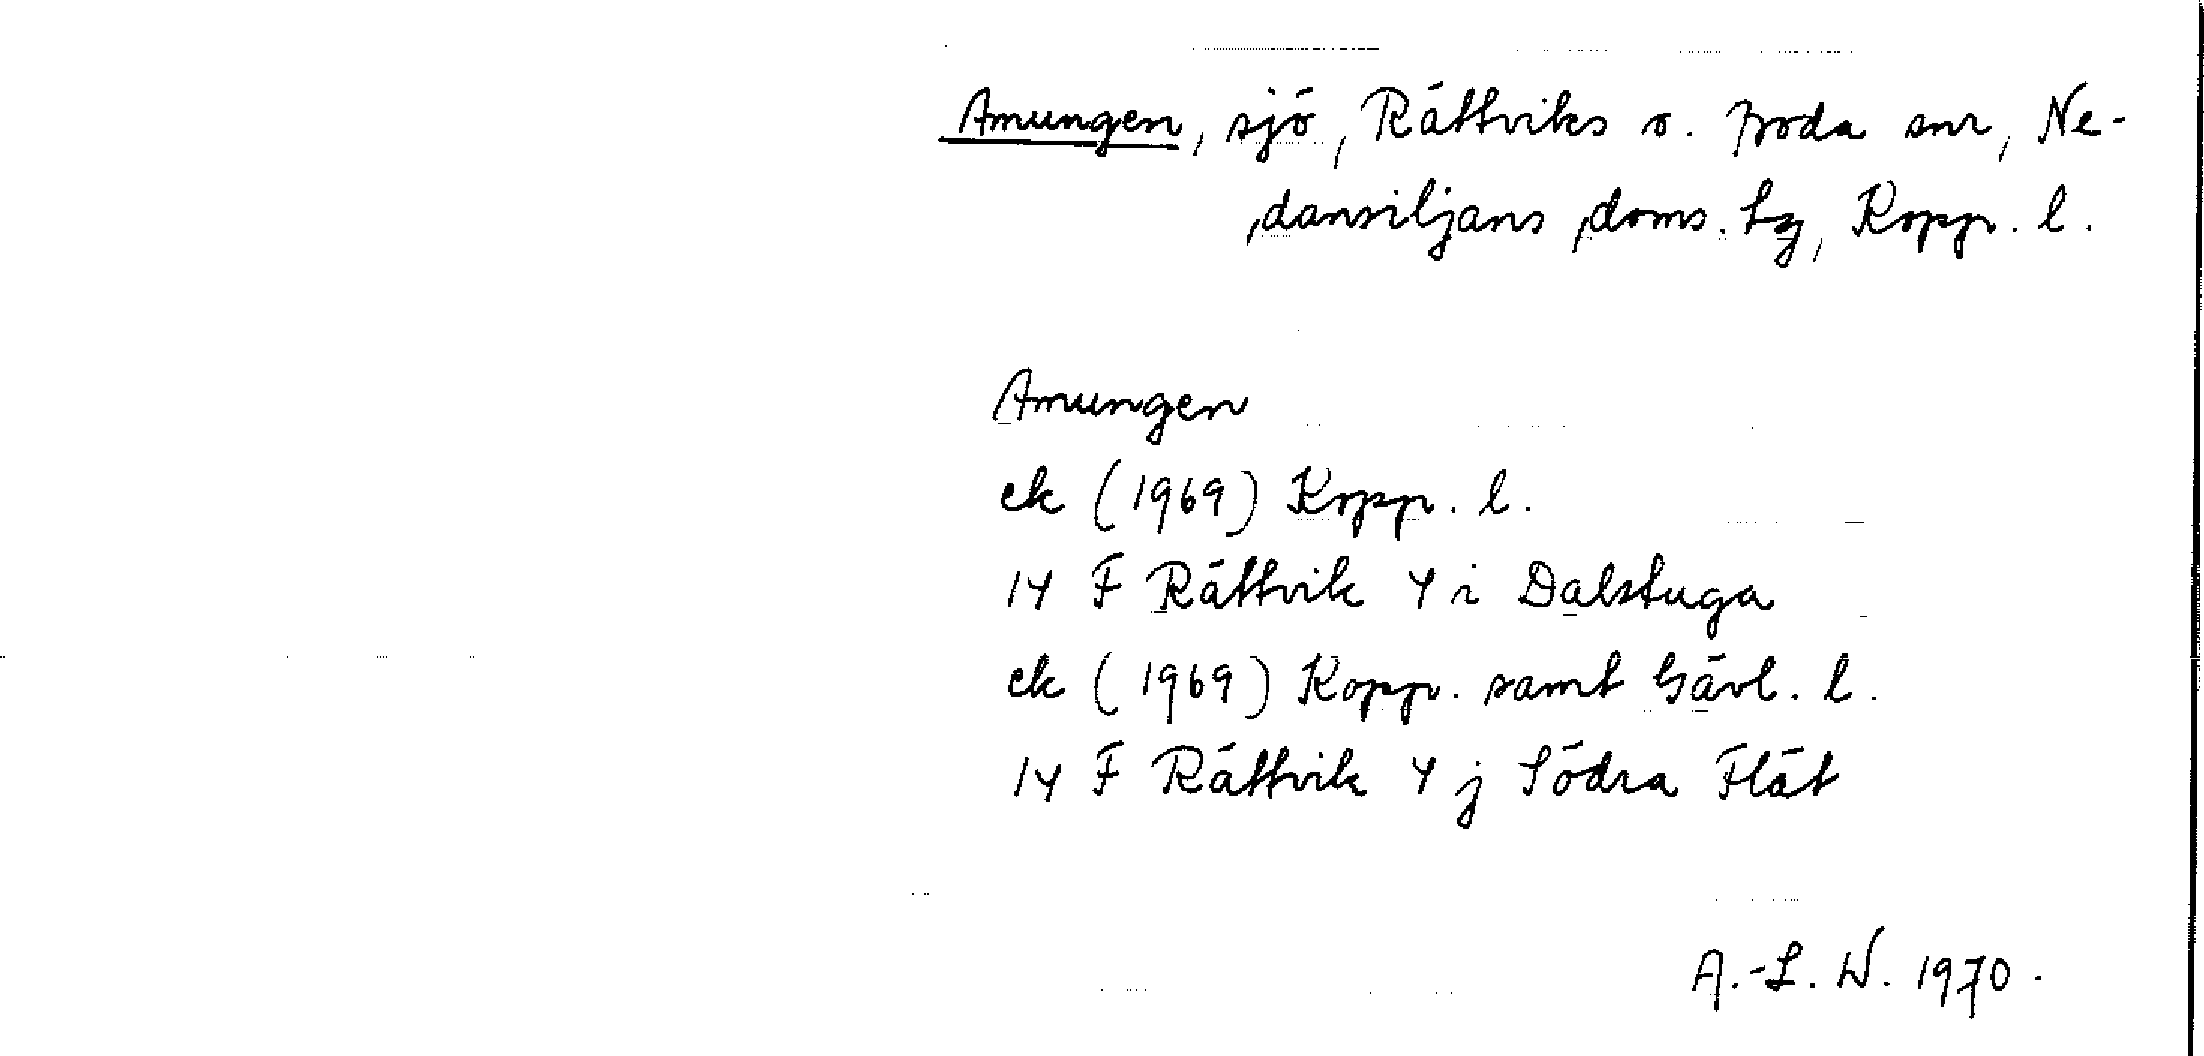 Amungen, sjö, Rättviks o. Boda snr, Ne-
dansiljans doms. tg, Kopp. l.
Amungen
ek (1969) Kopp. l.
14 F Rättvik 4 i Dalstuga
ek (1969) Kopp. samt Gävl. l.
14 F Rättvik 4 j Södra Flät
A.-L. W. 1970.